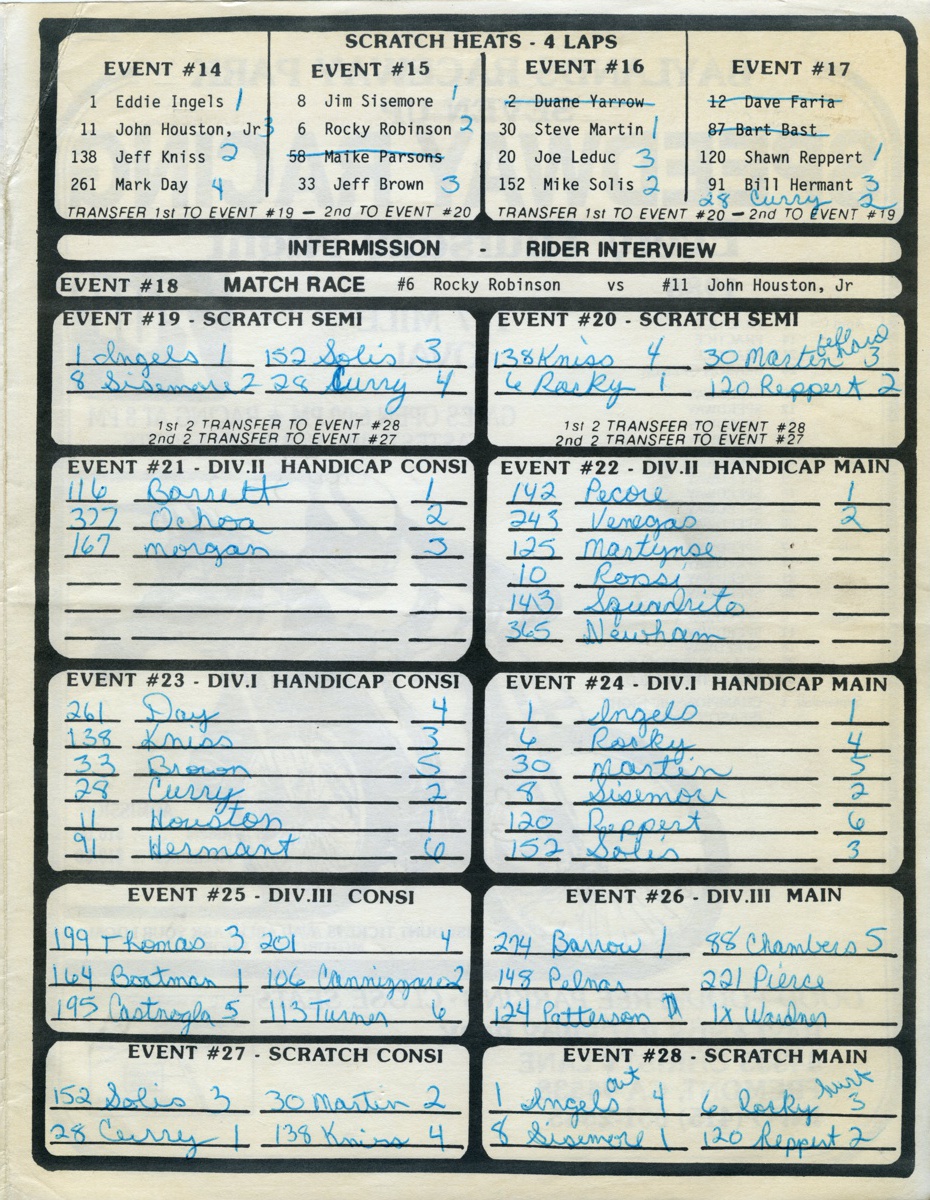 SCRATCH HEATS - 4 LAPS
EVENT #14
1 Eddie Ingels 1
11 John Houston, Jr 3
138 Jeff Kniss 2
261 Mark Day 4
EVENT #15
8 Jim Sisemore 1
6 Rocky Robinson 2
58 Maike Parsons
33 Jeff Brown 3
TRANSFER 1st TO EVENT #19 — 2nd TO EVENT #20
EVENT #16
2 Duane Yarrow
30 Steve Martin 1
20 Joe Leduc 3
152 Mike Solis 2
EVENT #17
12 Dave Faria
87 Bart Bast
120 Shawn Reppert 1
91 Bill Hermant 3
28 Curry 2
TRANSFER 1st TO EVENT #20 — 2nd TO EVENT #19
INTERMISSION - RIDER INTERVIEW
EVENT #18 MATCH RACE #6 Rocky Robinson vs #11 John Houston, Jr
EVENT #19 - SCRATCH SEMI
1 Ingels 1 152 Solis 3
8 Sisemore 2 28 Curry 4
1st 2 TRANSFER TO EVENT #28
2nd 2 TRANSFER TO EVENT #27
EVENT #20 - SCRATCH SEMI
138 Kniss 4 30 Martin 3
6 Rocky 1 120 Reppert 2
1st 2 TRANSFER TO EVENT #28
2nd 2 TRANSFER TO EVENT #27
EVENT #21 - DIV.II HANDICAP CONSI
116 Barrett 1
377 Ochoa 2
167 Morgan 3
EVENT #22 - DIV.II HANDICAP MAIN
142 Pecore 1
243 Venegas 2
125 Martynse
10 Rossi
143 Squadrito
365 Newham
EVENT #23 - DIV.I HANDICAP CONSI
261 Day 4
138 Kniss 3
33 Brown 5
28 Curry 2
11 Houston 1
91 Hermant 6
EVENT #24 - DIV.I HANDICAP MAIN
1 Ingels 1
6 Rocky 4
30 Martin 5
8 Sisemore 2
120 Reppert 6
152 Solis 3
EVENT #25 - DIV.III CONSI
199 Thomas 3 201 4
164 Boatman 1 106 Cannizzaro 2
195 5 113 Turner 6
EVENT #26 - DIV.III MAIN
274 Barrow 1 88 Chambers 5
148 Pelnar 221 Pierce
124 Patterson 1X Wardner
EVENT #27 - SCRATCH CONSI
152 Solis 3 30 Martin 2
28 Curry 1 138 Kniss 4
EVENT #28 - SCRATCH MAIN
1 Ingels out 4 6 Rocky hurt 3
8 Sisemore 1 120 Reppert 2